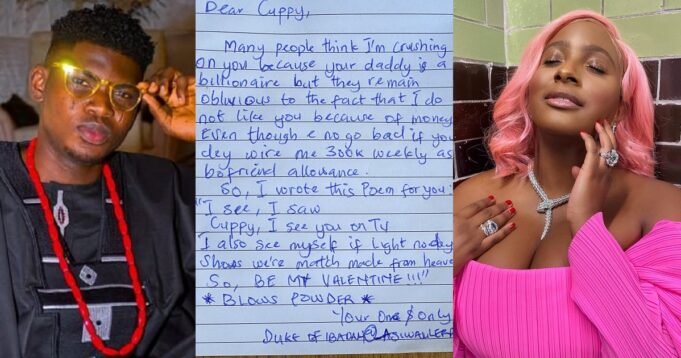 Dear Cuppy,
Many people think I'm crushing
on you because your daddy is a
billionaire but they remain
oblivious to the fact that I do
not like you because of money
Even though e no go bad if you
dey wire me 300k weekly as
bofriend allowance.
So, I wrote this Poem for you:
"I see, I saw
Cuppy, I see you on TV
I also see myself if Light no dey
Shows we're match made from heaven
So, BE MY VALENTINE!!!"
* BLOWS POWDER *
Your One & Only
DUKE OF IBADAN